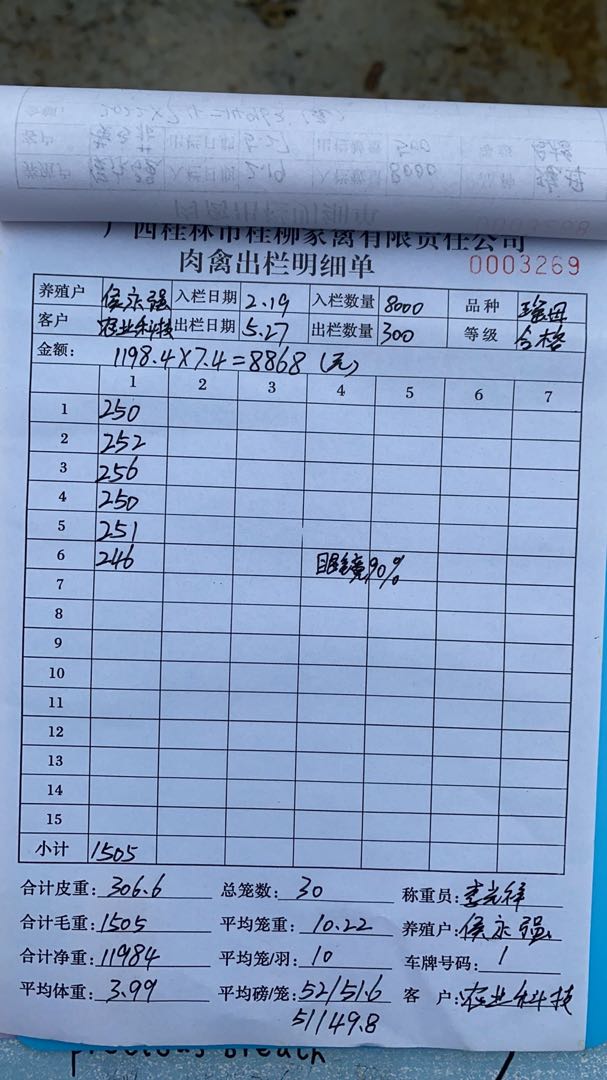 广西桂林市桂柳家禽有限责任公司
肉禽出栏明细单 0003269
养殖户 侯永强 入栏日期 2.19 入栏数量 8000 品种 瑶母
客户 农业科技 出栏日期 5.27 出栏数量 300 等级 合格
金额: 1198.4×7.4=8868(元)
1 2 3 4 5 6 7
1 250
2 252
3 256
4 250
5 251
6 246 眼镜90%
7
8
9
10
11
12
13
14
15
小计 1505
合计皮重: 306.6 总笼数: 30 称重员: 李光祥
合计毛重: 1505 平均笼重: 10.22 养殖户: 侯永强
合计净重: 11984 平均笼/羽: 10 车牌号码: 1
平均体重: 3.99 平均磅/笼: 52/51.6 客 户: 农业科技
51149.8
precious breath